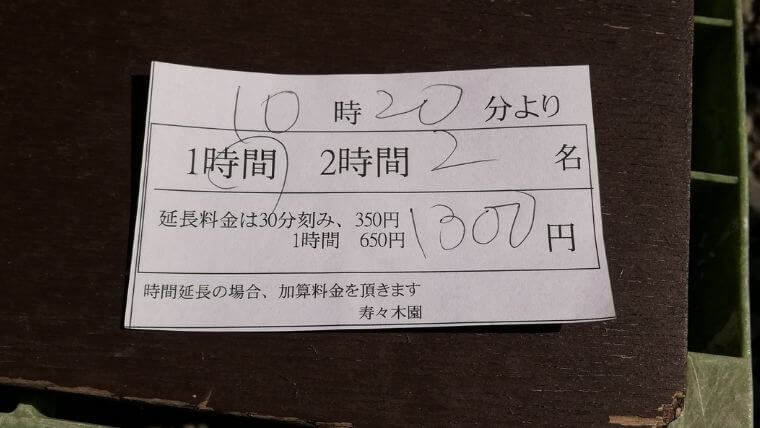 10時20分より
1時間 2時間 2名
延長料金は30分刻み、350円
1時間 650円 1300円
時間延長の場合、加算料金を頂きます
寿々木園